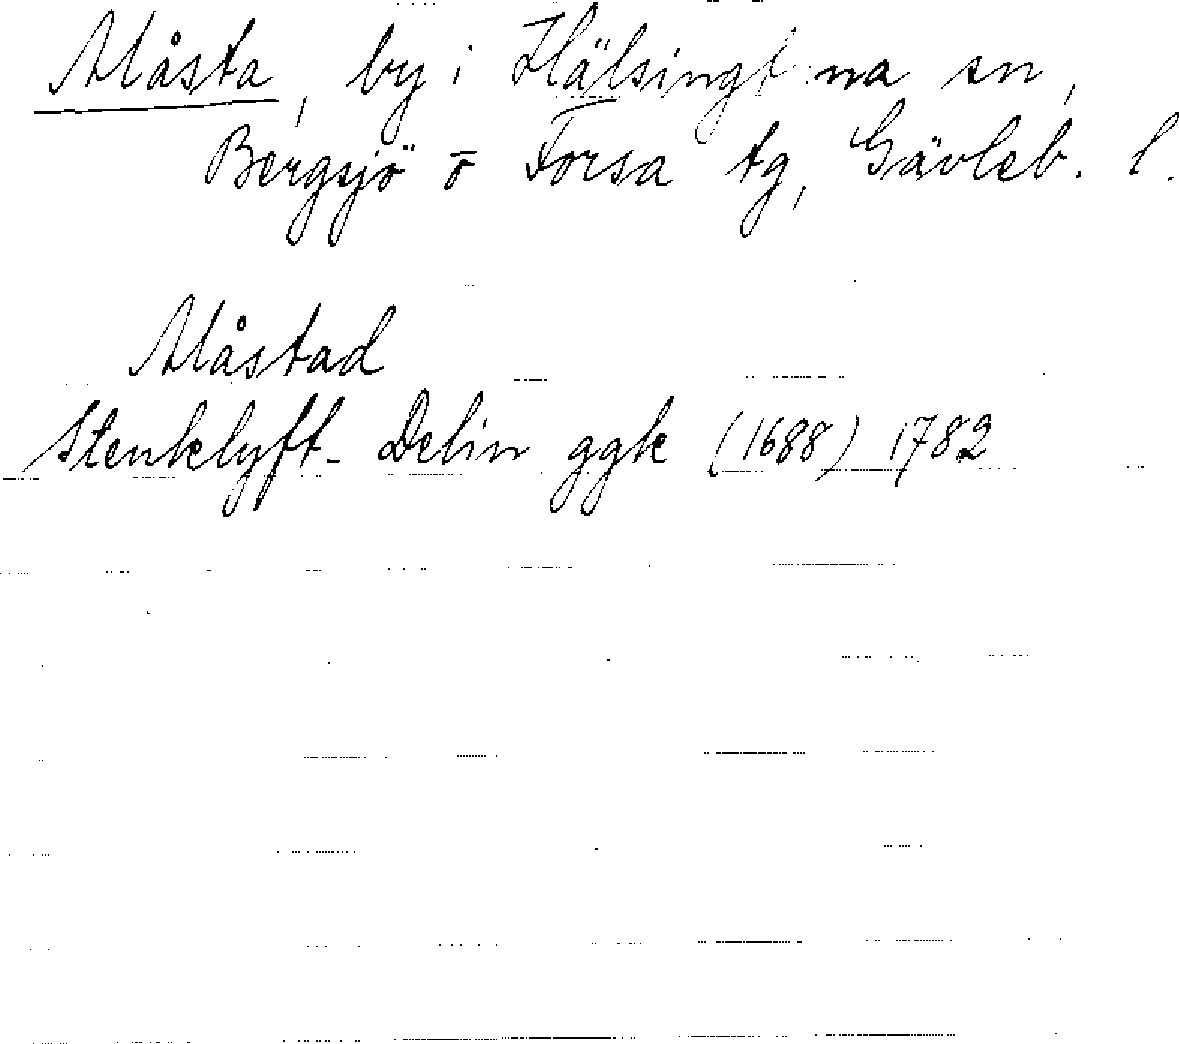 Måsta, by i Hälsingtuna sn,
Bergsjö o Forsa tg, Gävleb. l.
Måstad
Stenklyft- Delin ggk (1688) 1782